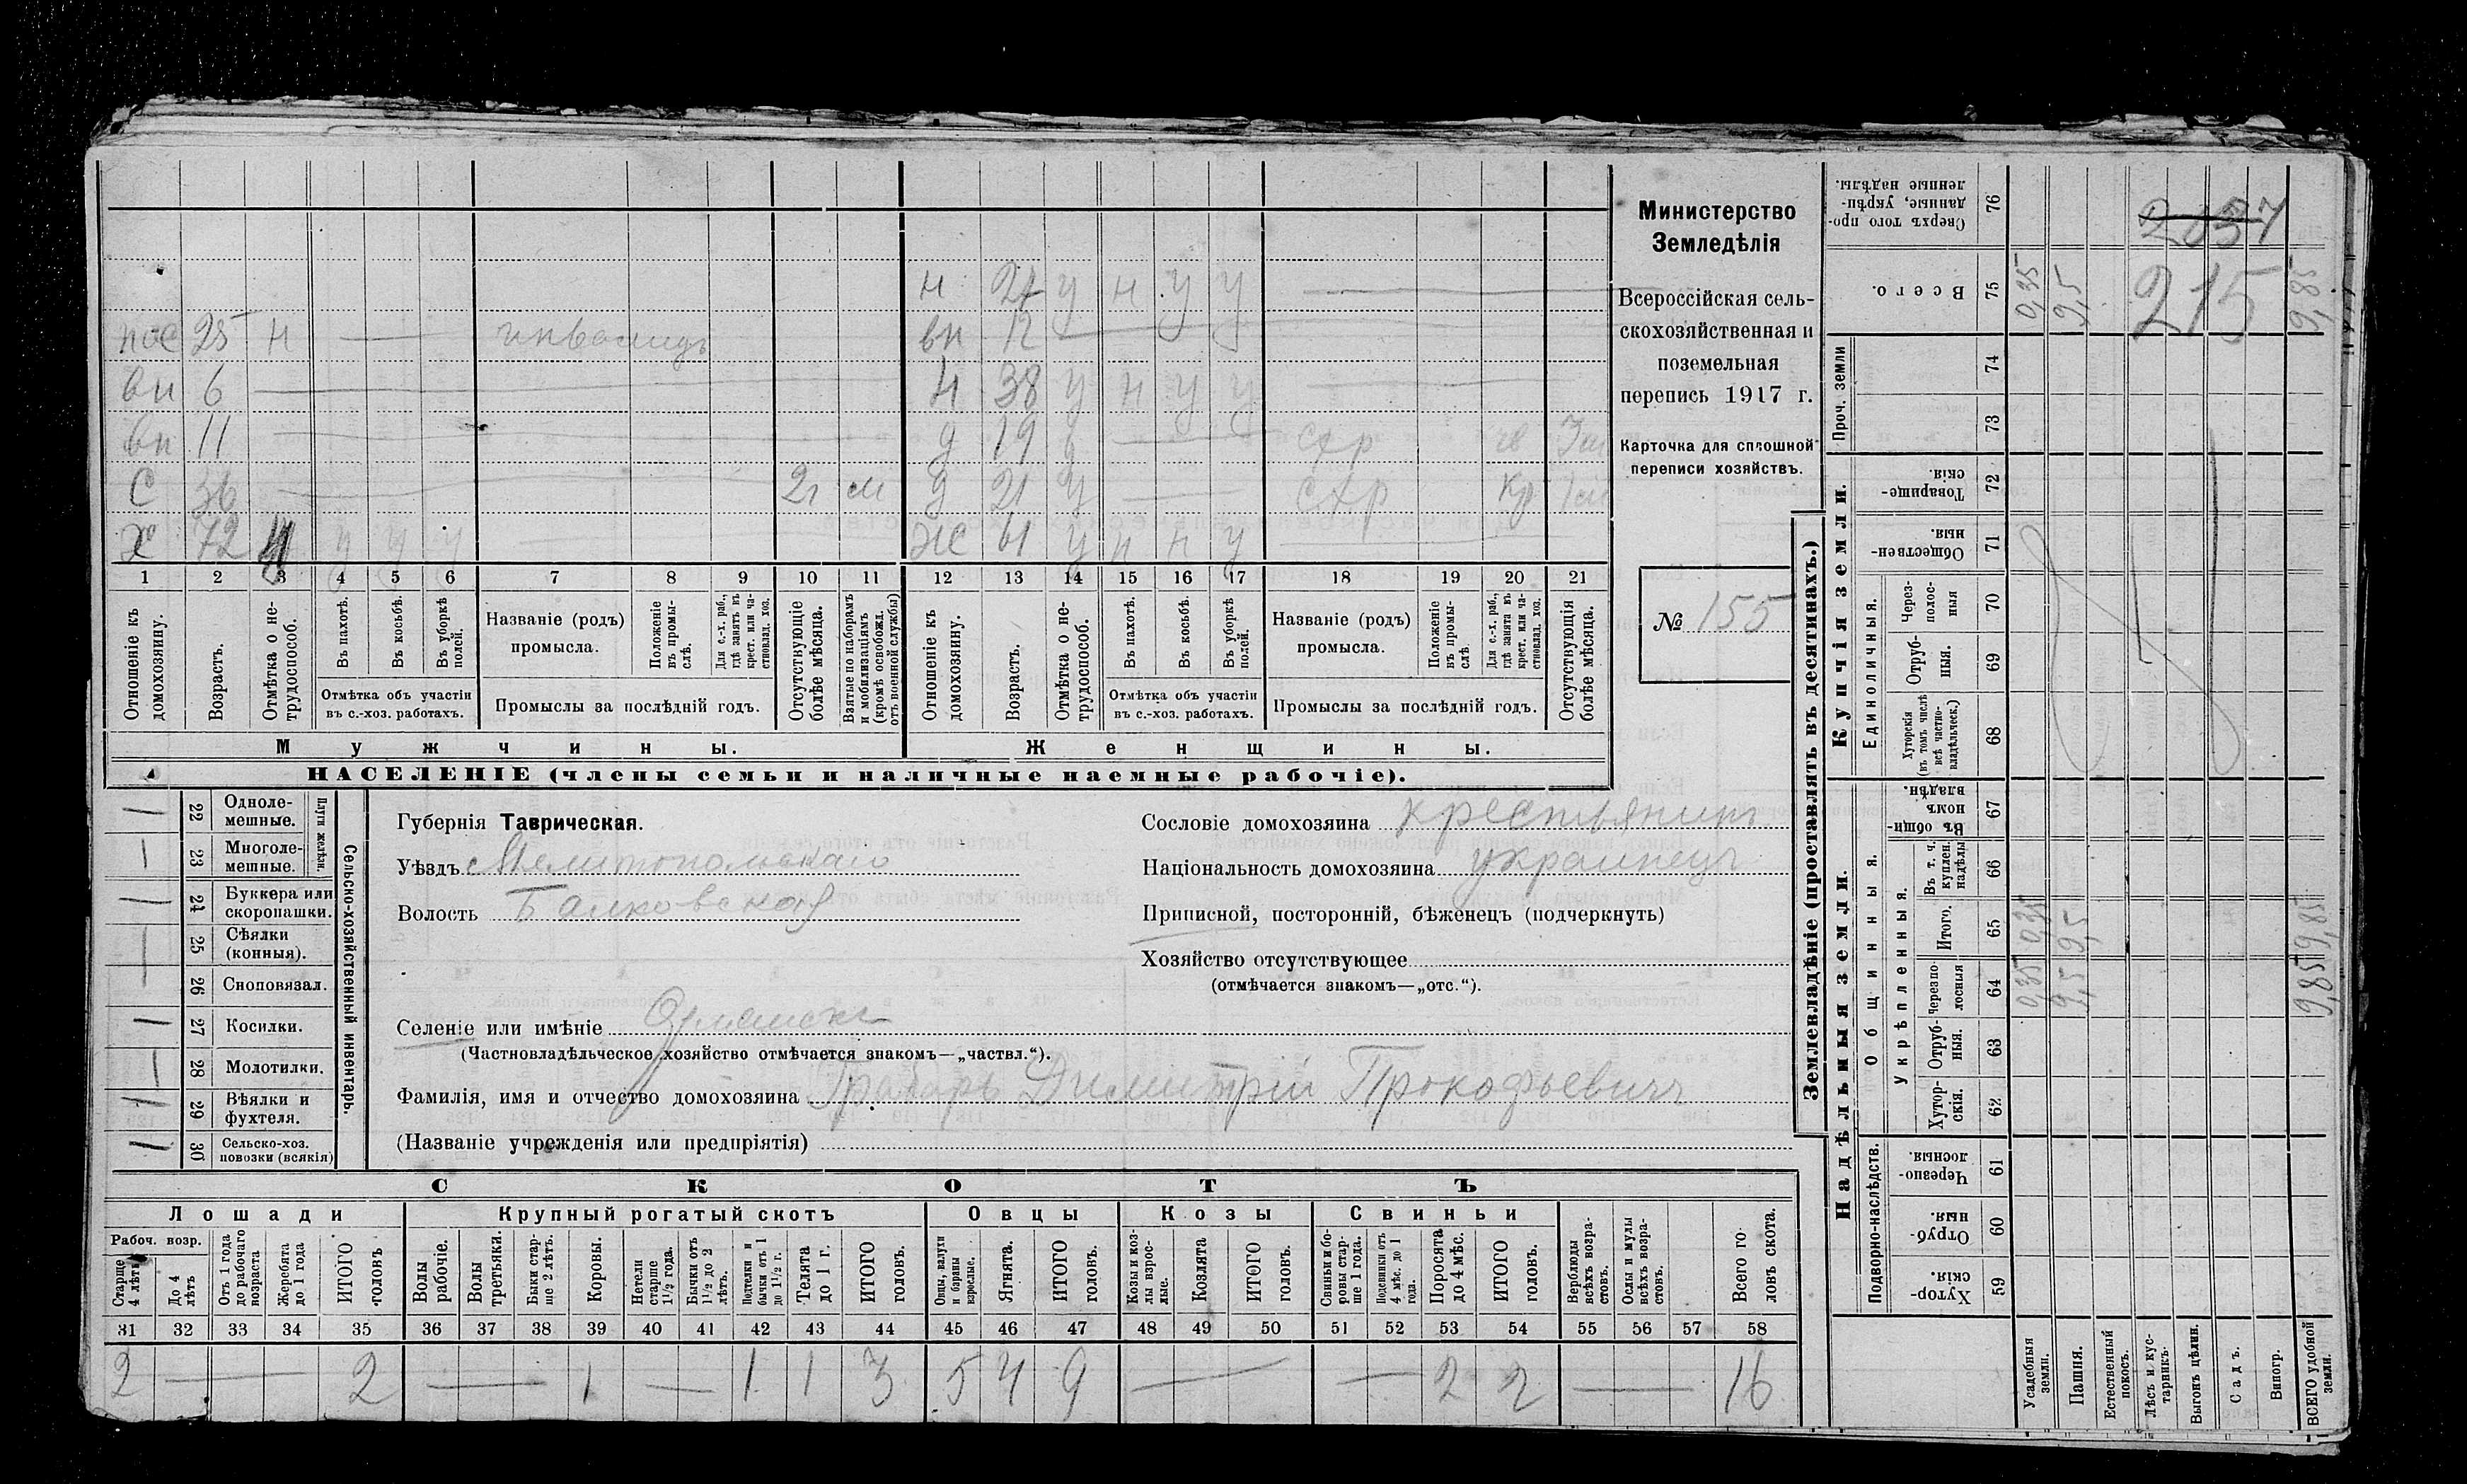 Министерство
Земледѣлія
Всероссійская сель-
скохозяйственная и
поземельная
перепись 1917 г.
Карточка для сплошной
переписи хозяйствъ.
№ 155
н 27 у н у у
пос 25 н — инвалидъ вн 12
вн 6 н 38 у н у у
вн 11 д 19 у — схр
С 36 2г м д 21 у — схр кр
Х 72 н у у у Ж 61 у н н у
1 2 3 4 5 6 7 8 9 10 11 12 13 14 15 16 17 18 19 20 21
Отношеніе къ домохозяину.
Возрастъ.
Отмѣтка о не-трудоспособ.
Въ пахотѣ.
Въ косьбѣ.
Въ уборкѣ полей.
Отмѣтка объ участіи въ с.-хоз. работахъ.
Названіе (родъ) промысла.
Положеніе въ промы-слѣ.
Для с.-х. раб., гдѣ занятъ въ крест. или ча-стновлад. хоз.
Промыслы за послѣдній годъ.
Отсутствующіе болѣе мѣсяца.
Взятые по наборамъ и мобилизаціямъ (кромѣ освобожд. отъ военной службы)
Отношеніе къ домохозяину.
Возрастъ.
Отмѣтка о не-трудоспособ.
Въ пахотѣ.
Въ косьбѣ.
Въ уборкѣ полей.
Отмѣтка объ участіи въ с.-хоз. работахъ.
Названіе (родъ) промысла.
Положеніе въ промы-слѣ.
Для с.-х. раб., гдѣ занята въ крест. или ча-стновлад. хоз.
Промыслы за послѣдній годъ.
Отсутствующія болѣе мѣсяца.
Мужчины. Женщины.
НАСЕЛЕНІЕ (члены семьи и наличные наемные рабочіе).
Сельско-хозяйственный инвентарь.
Плуги желѣзн.
22 Одноле-мешные.
23 Многоле-мешные.
24 Буккера или скоропашки.
25 Сѣялки (конныя).
26 Сноповязал.
27 Косилки.
28 Молотилки.
29 Вѣялки и фухтеля.
30 Сельско-хоз. повозки (всякія)
Губернія Таврическая.
Уѣздъ Мелитопольскаго
Волость Балковской
Селеніе или имѣніе
(Частновладѣльческое хозяйство отмѣчается знакомъ—„частвл.“).
Фамилія, имя и отчество домохозяина Грабарь Димитрій Прокофьевичъ
(Названіе учрежденія или предпріятія)
Сословіе домохозяина крестьянинъ
Національность домохозяина украинецъ
Приписной, посторонній, бѣженецъ (подчеркнуть)
Хозяйство отсутствующее
(отмѣчается знакомъ—„отс.“).
СКОТЪ
Лошади Крупный рогатый скотъ Овцы Козы Свиньи
Рабоч. возр.
Старше 4 лѣтъ
До 4 лѣтъ
Отъ 1 года до рабочаго возраста
Жеребята до 1 года
ИТОГО головъ
Волы рабочіе.
Волы третьяки.
Быки стар-ше 2 лѣтъ.
Коровы.
Нетели старше 1½ года.
Бычки отъ 1½ до 2 лѣтъ.
Подтелки и бычки отъ 1 до 1½ г.
Телята до 1 г.
ИТОГО головъ.
Овцы, валухи и бараны взрослые.
Ягнята.
ИТОГО головъ.
Козы и коз-лы взрос-лые.
Козлята
ИТОГО головъ.
Свиньи и бо-ровы стар-ше 1 года.
Подсвинки отъ 4 мѣс. до 1 года.
Поросята до 4 мѣс.
ИТОГО головъ.
Верблюды всѣхъ возра-стовъ.
Ослы и мулы всѣхъ возра-стовъ.
Всего го-ловъ скота.
31 32 33 34 35 36 37 38 39 40 41 42 43 44 45 46 47 48 49 50 51 52 53 54 55 56 57 58
2 — 2 — 1 — 1 1 3 5 4 9 — — 2 2 — 16
Землевладѣніе (проставлять въ десятинахъ.)
Купчія земли.
Надѣльныя земли.
Сверхъ того про-данные, укрѣп-ленные надѣлы. 76
Всего. 75
Проч. земли 74 73
Товарище-скія. 72
Обществен-ныя. 71
Единоличныя.
Через-полос-ныя 70
Отруб-ныя. 69
Хуторскія (въ томъ числѣ всѣ частно-владѣльческ.) 68
Общинныя.
Въ общин-номъ владѣн. 67
Укрѣпленныя.
Въ т. ч. куплен. надѣлы 66
Итого. 65
Черезпо-лосныя 64
Отруб-ныя. 63
Хутор-скія. 62
Подворно-наслѣдств.
Черезпо-лосныя. 61
Отруб-ныя. 60
Хутор-скія. 59
Усадебныя земли. 0,35 0,35 0,35
Пашня. 9,5 9,5 9,5
Естественный покосъ.
Лѣсъ и кус-тарникъ.
Выгонъ цѣлин.
Садъ.
Виногр.
ВСЕГО удобной земли. 9,85 9,85 9,85
215